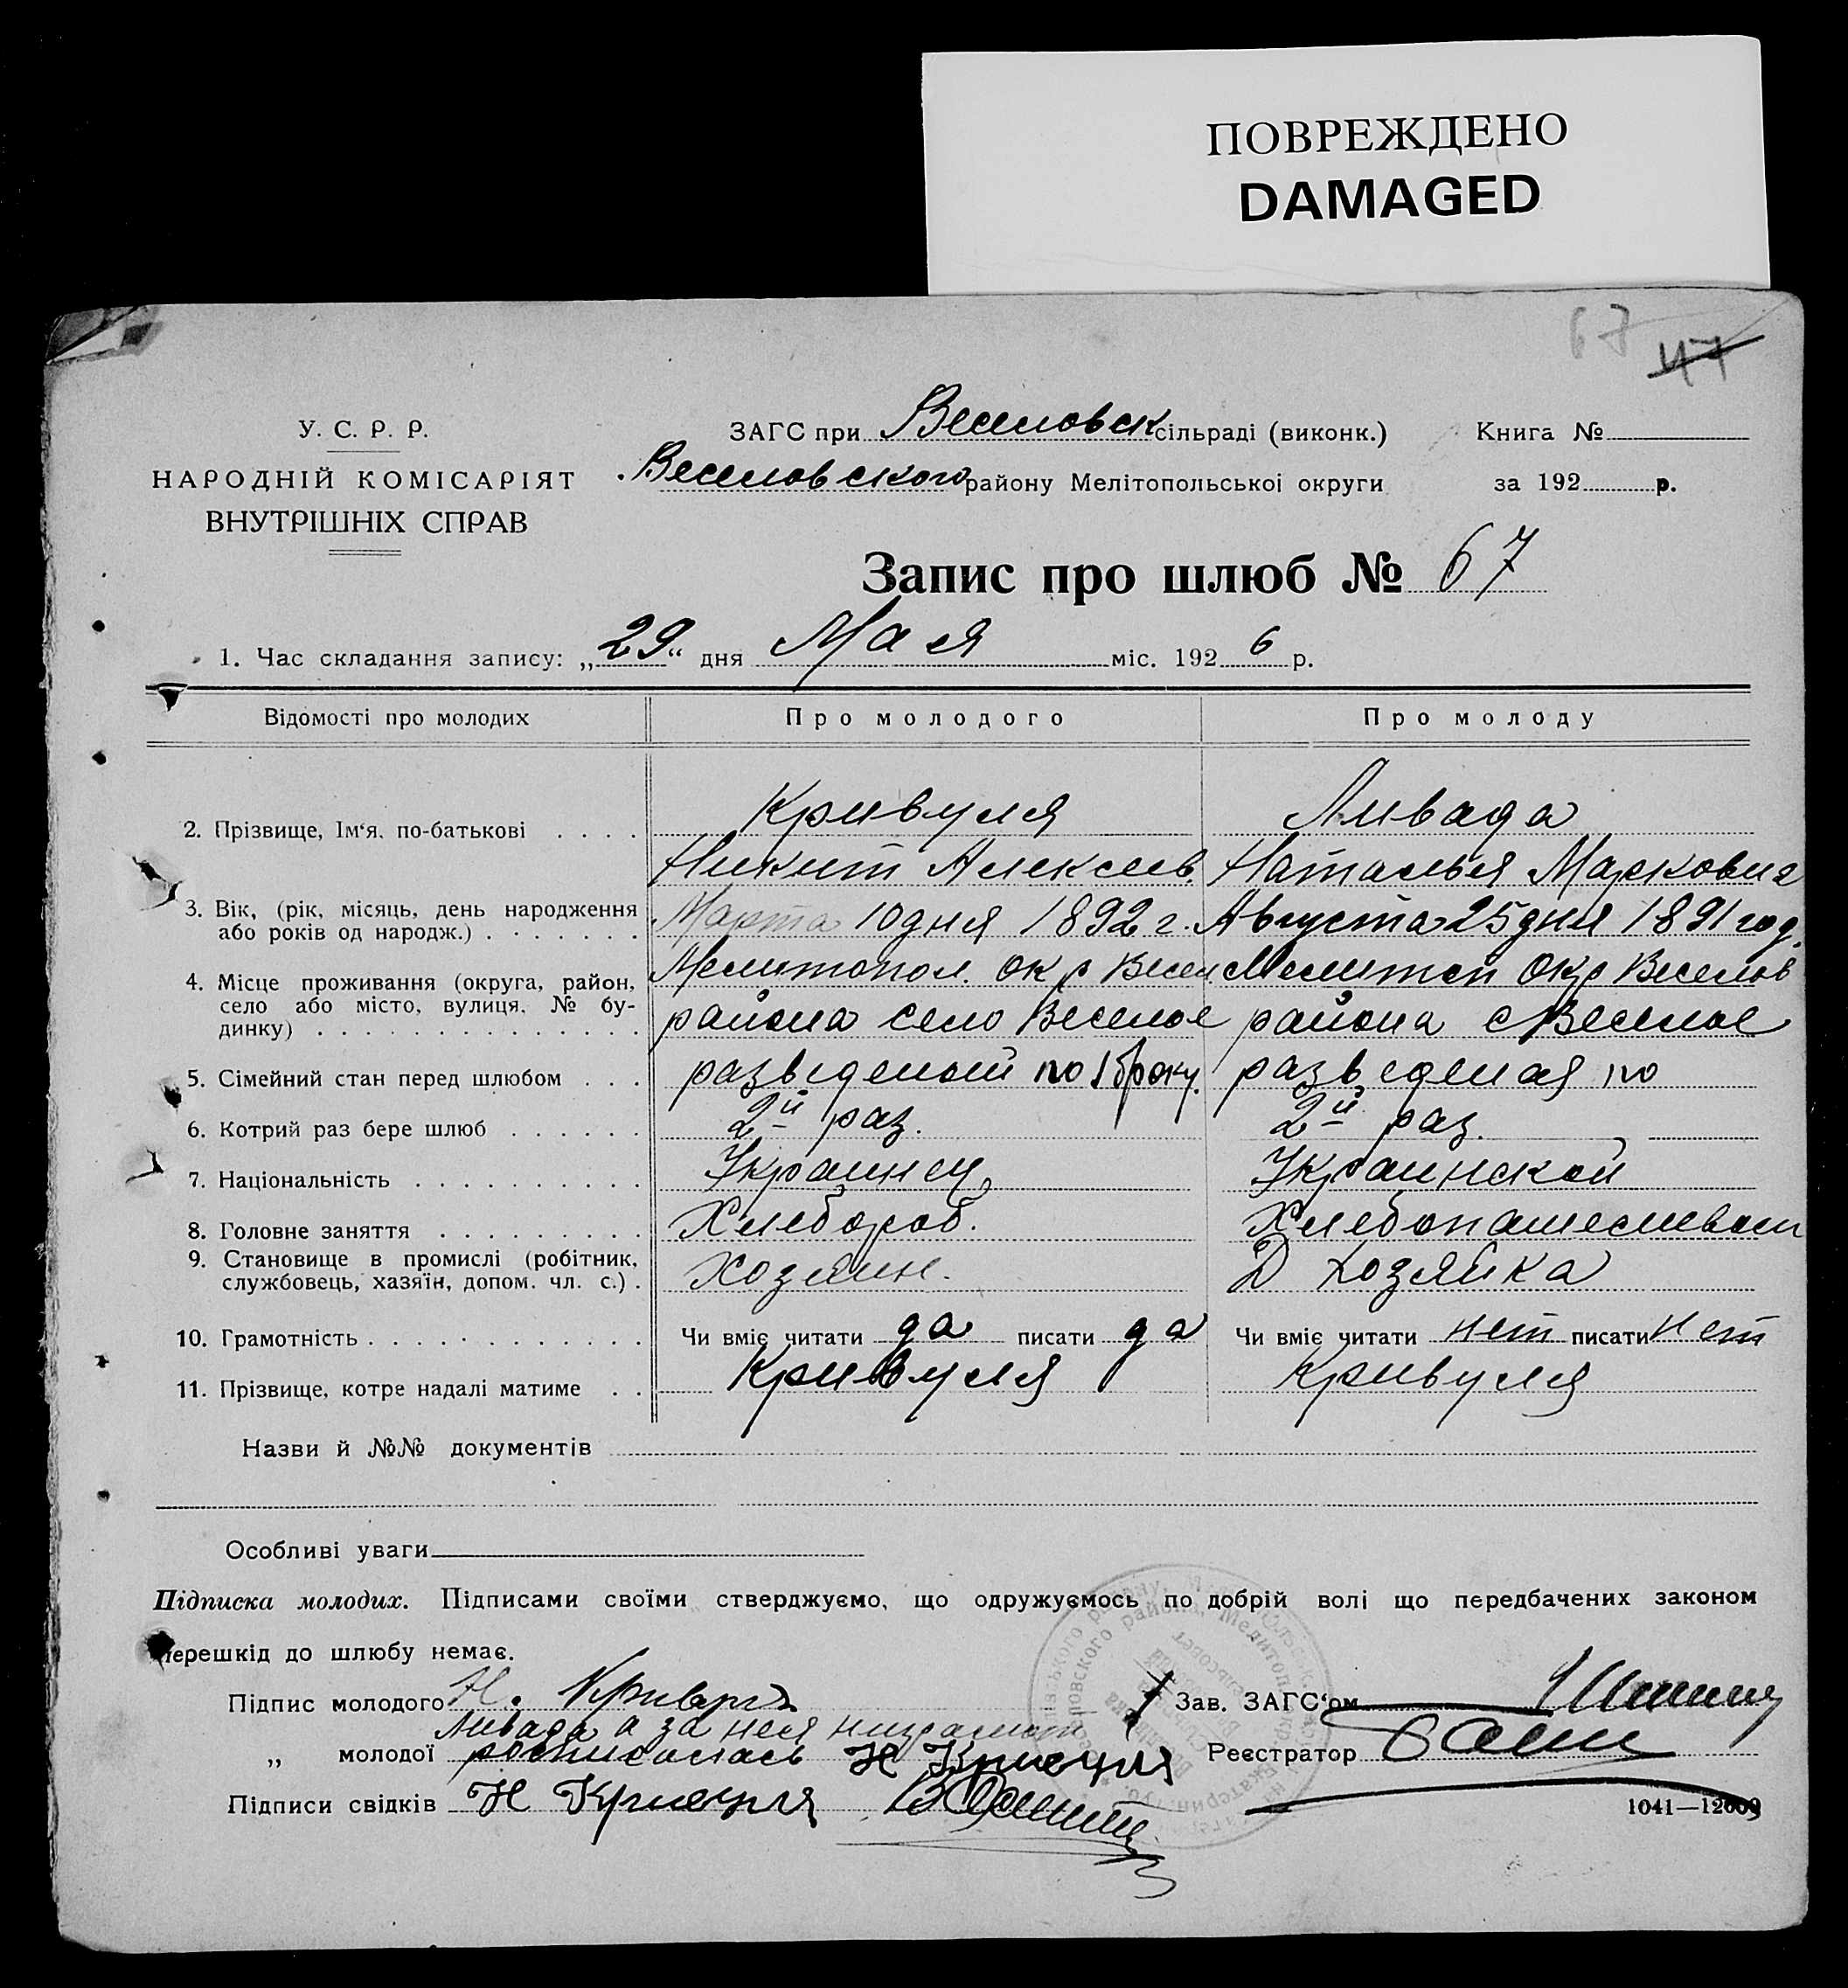 ПОВРЕЖДЕНО
DAMAGED
67 47
У. С. Р. Р.
НАРОДНІЙ КОМІСАРІЯТ
ВНУТРІШНІХ СПРАВ
ЗАГС при Веселовск сільраді (виконк.) Книга №
Веселовского району Мелітопольської округи за 192 р.
Запис про шлюб № 67
1. Час складання запису: „29“ дня Мая міс. 1926 р.
Відомості про молодих Про молодого Про молоду
2. Прізвище, Ім‘я, по-батькові Кривуля Ливада
Никит Алексеев. Наталья Маркович
3. Вік, (рік, місяць, день народження
або років од народж.) Марта 10 дня 1892 г. Августа 25 дня 1891 год.
4. Місце проживання (округа, район, Мелитопол. окр Весел. Мелитоп Окр Веселов
село або місто, вулиця, № бу-
динку) района село Веселое района с Веселое
5. Сімейний стан перед шлюбом разведеный по 1 браку. разведеная по
6. Котрий раз бере шлюб 2й раз. 2й раз.
7. Національність Украинец Украинской
8. Головне заняття Хлебороб.
9. Становище в промислі (робітник,
службовець, хазяїн, допом. чл. с.) Хозяин. Д хозяйка
10. Грамотність Чи вміє читати да писати да Чи вміє читати нет писати нет
11. Прізвище, котре надалі матиме Кривуля Кривуля
Назви й №№ документів
Особливі уваги
Підписка молодих. Підписами своїми стверджуємо, що одружуємось по добрій волі що передбачених законом
перешкід до шлюбу немає.
Підпис молодого Н. Зав. ЗАГС‘ом
Ливада а за нея
„ молодої росписалась Н Кривуля Реєстратор
Підписи свідків Н Кривуля
1041—12000